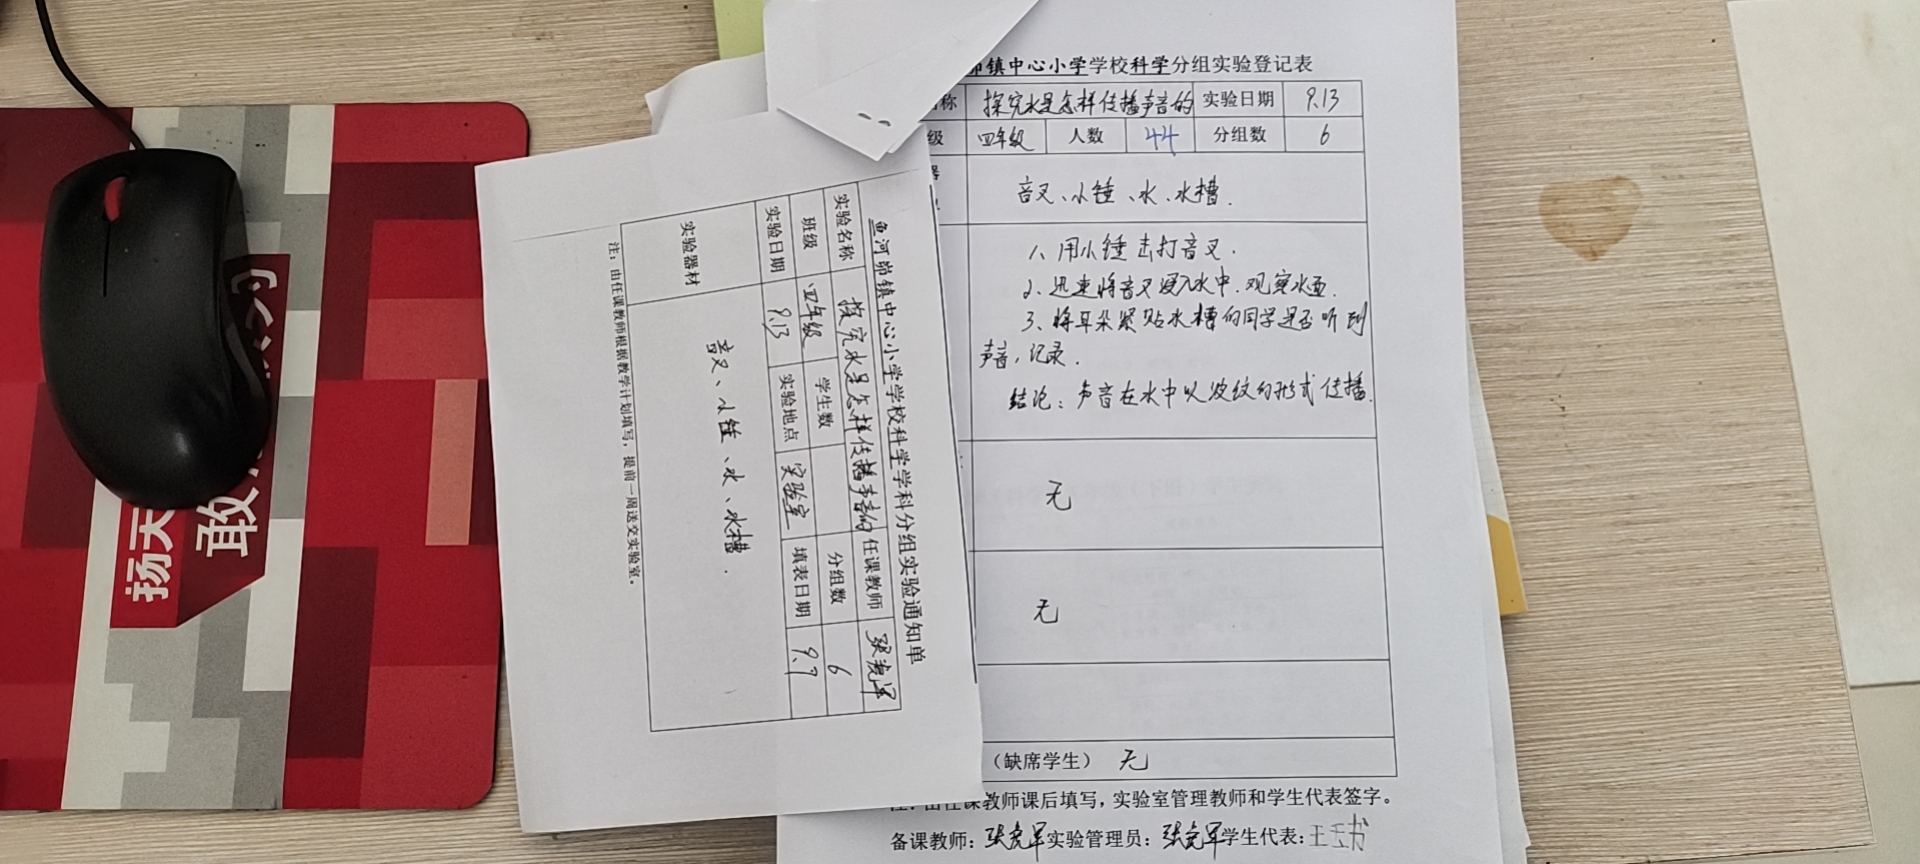 扬天
敢
鱼河峁镇中心小学学校科学学科分组实验通知单
实验名称 探究水是怎样传播声音的 任课教师
班级 四年级 学生数 分组数 6
实验日期 9.13 实验地点 实验室 填表日期 9.7
实验器材 音叉、小锤、水、水槽.
注:由任课教师根据教学计划填写,提前一周送交实验室。
峁镇中心小学学校科学分组实验登记表
称 探究水是怎样传播声音的 实验日期 9.13
级 四年级 人数 44 分组数 6
器 音叉、小锤、水、水槽.
1、用小锤击打音叉.
2、迅速将音叉浸入水中.观察水面.
3、将耳朵紧贴水槽的同学是否听到
声音,记录.
结论:声音在水中以波纹的形式传播.
无
无
(缺席学生) 无
注:由任课教师课后填写,实验室管理教师和学生代表签字。
备课教师: 实验管理员: 学生代表: